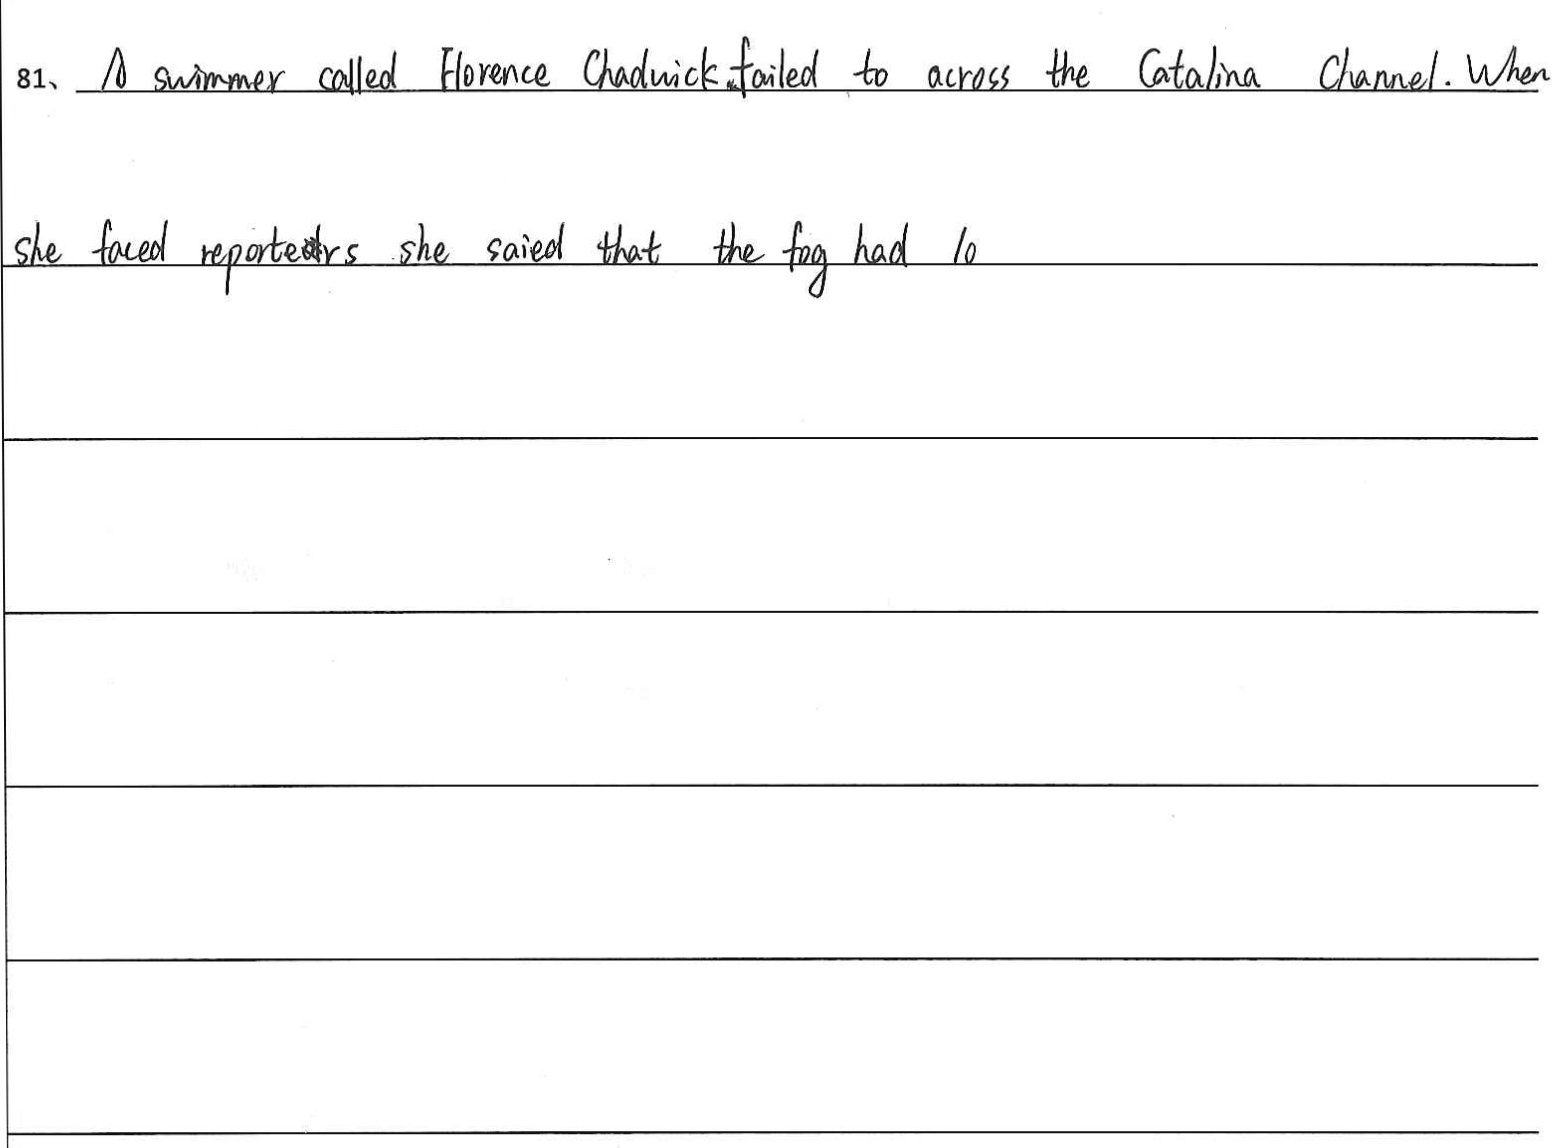 81、 A swimmer called Florence Chadwick failed to across the Catalina Channel. When
she faced reporters she saied that the fog had lo